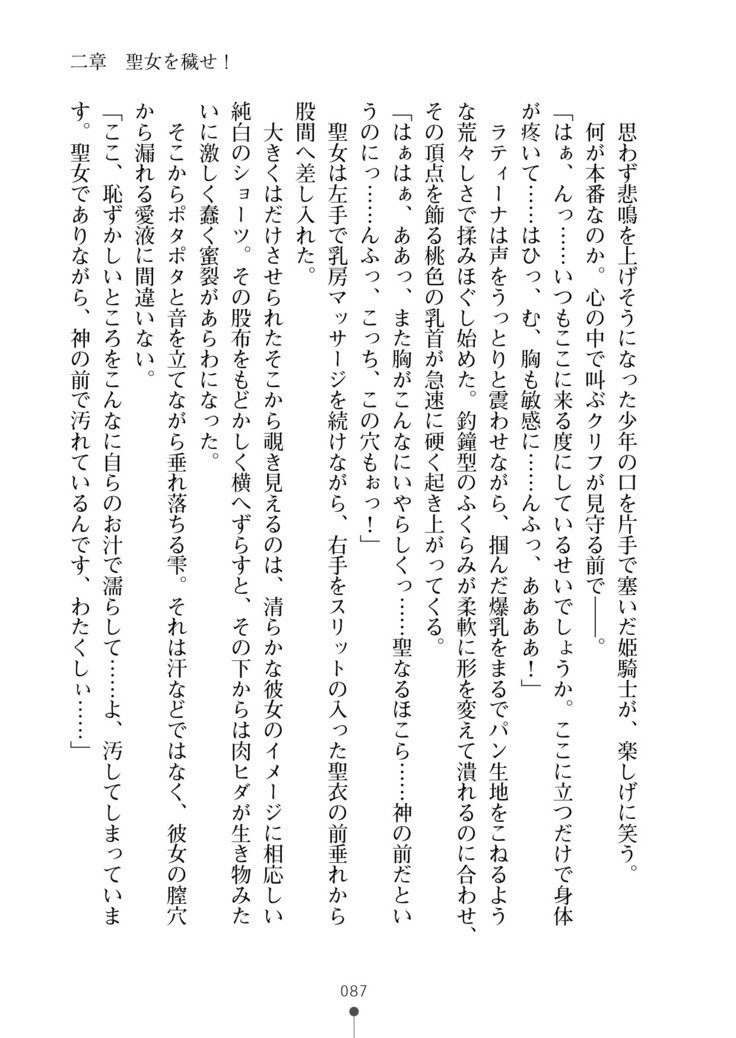 二章　聖女を穢せ！
思わず悲鳴を上げそうになった少年の口を片手で塞いだ姫騎士が、楽しげに笑う。
何が本番なのか。心の中で叫ぶクリフが見守る前で――。
「はぁ、んっ……いつもここに来る度にしているせいでしょうか。ここに立つだけで身体
が疼いて……はひっ、む、胸も敏感に……んふっ、ああああ！」
ラティーナは声をうっとりと震わせながら、掴んだ爆乳をまるでパン生地をこねるよう
な荒々しさで揉みほぐし始めた。釣鐘型のふくらみが柔軟に形を変えて潰れるのに合わせ、
その頂点を飾る桃色の乳首が急速に硬く起き上がってくる。
「はぁはぁ、ああっ、また胸がこんなにいやらしくっ……聖なるほこら……神の前だとい
うのにっ……んふっ、こっち、この穴もぉっ！」
聖女は左手で乳房マッサージを続けながら、右手をスリットの入った聖衣の前垂れから
股間へ差し入れた。
大きくはだけさせられたそこから覗き見えるのは、清らかな彼女のイメージに相応しい
純白のショーツ。その股布をもどかしく横へずらすと、その下からは肉ヒダが生き物みた
いに激しく蠢く蜜裂があらわになった。
そこからポタポタと音を立てながら垂れ落ちる雫。それは汗などではなく、彼女の膣穴
から漏れる愛液に間違いない。
「ここ、恥ずかしいところをこんなに自らのお汁で濡らして……よ、汚してしまっていま
す。聖女でありながら、神の前で汚れているんです、わたくしぃ……」
087